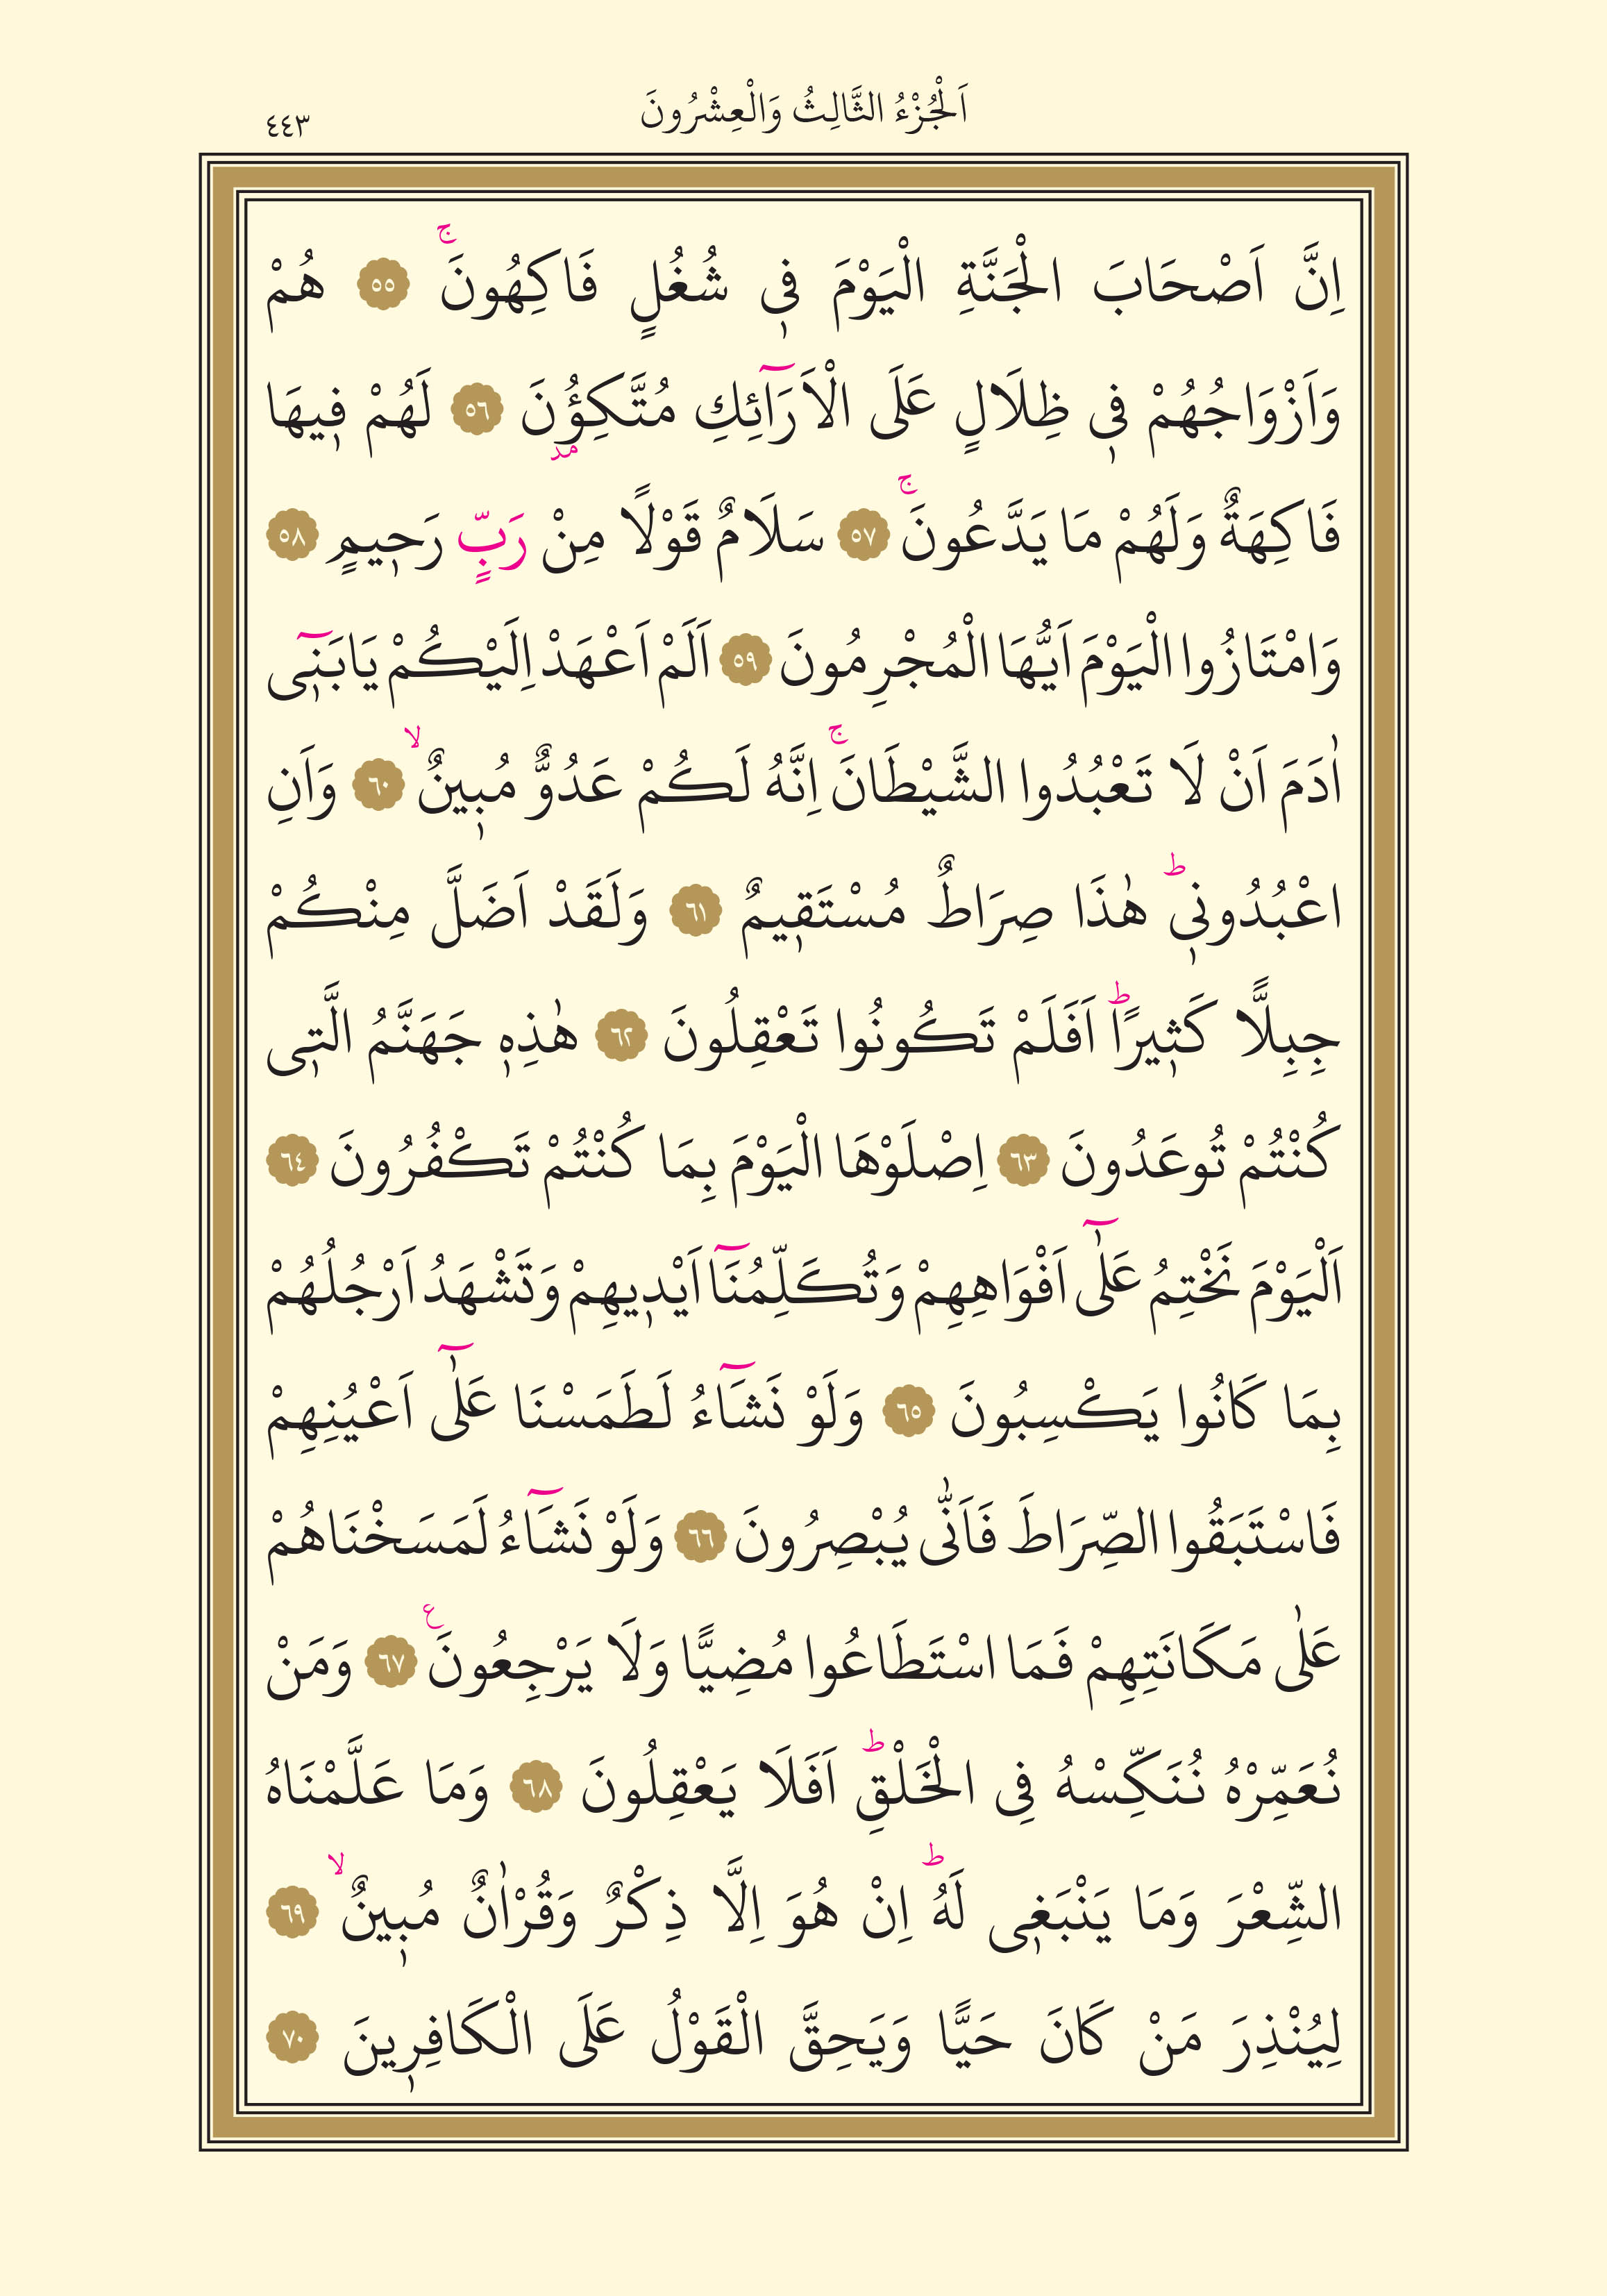 اَلْجُزْءُ الثَّالِثُ وَالْعِشْرُونَ
٤٤٣
اِنَّ اَصْحَابَ الْجَنَّةِ الْيَوْمَ ف۪ي شُغُلٍ فَاكِهُونَۚ ٥٥ هُمْ
وَاَزْوَاجُهُمْ ف۪ي ظِلَالٍ عَلَى الْاَرَٓائِكِ مُتَّكِؤُ۫نَ ٥٦ لَهُمْ ف۪يهَا
فَاكِهَةٌ وَلَهُمْ مَا يَدَّعُونَۚ ٥٧ سَلَامٌ قَوْلًا مِنْ رَبٍّ رَح۪يمٍ ٥٨
وَامْتَازُوا الْيَوْمَ اَيُّهَا الْمُجْرِمُونَ ٥٩ اَلَمْ اَعْهَدْ اِلَيْكُمْ يَابَن۪ٓي
اٰدَمَ اَنْ لَا تَعْبُدُوا الشَّيْطَانَۚ اِنَّهُ لَكُمْ عَدُوٌّ مُب۪ينٌۙ ٦٠ وَاَنِ
اعْبُدُون۪يۜ هٰذَا صِرَاطٌ مُسْتَق۪يمٌ ٦١ وَلَقَدْ اَضَلَّ مِنْكُمْ
جِبِلًّا كَث۪يرًاۜ اَفَلَمْ تَكُونُوا تَعْقِلُونَ ٦٢ هٰذِه۪ جَهَنَّمُ الَّت۪ي
كُنْتُمْ تُوعَدُونَ ٦٣ اِصْلَوْهَا الْيَوْمَ بِمَا كُنْتُمْ تَكْفُرُونَ ٦٤
اَلْيَوْمَ نَخْتِمُ عَلٰٓى اَفْوَاهِهِمْ وَتُكَلِّمُنَٓا اَيْد۪يهِمْ وَتَشْهَدُ اَرْجُلُهُمْ
بِمَا كَانُوا يَكْسِبُونَ ٦٥ وَلَوْ نَشَٓاءُ لَطَمَسْنَا عَلٰٓى اَعْيُنِهِمْ
فَاسْتَبَقُوا الصِّرَاطَ فَاَنّٰى يُبْصِرُونَ ٦٦ وَلَوْ نَشَٓاءُ لَمَسَخْنَاهُمْ
عَلٰى مَكَانَتِهِمْ فَمَا اسْتَطَاعُوا مُضِيًّا وَلَا يَرْجِعُونَ۟ ٦٧ وَمَنْ
نُعَمِّرْهُ نُنَكِّسْهُ فِي الْخَلْقِۜ اَفَلَا يَعْقِلُونَ ٦٨ وَمَا عَلَّمْنَاهُ
الشِّعْرَ وَمَا يَنْبَغ۪ي لَهُۜ اِنْ هُوَ اِلَّا ذِكْرٌ وَقُرْاٰنٌ مُب۪ينٌۙ ٦٩
لِيُنْذِرَ مَنْ كَانَ حَيًّا وَيَحِقَّ الْقَوْلُ عَلَى الْكَافِر۪ينَ ٧٠